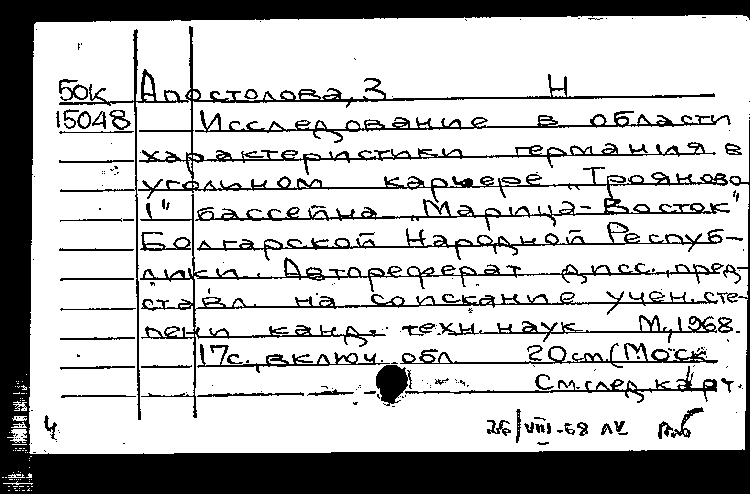 БОК Апостолова, З Н
15048 Исследование в области
характеристики германия в
угольном карьере „Трояново
1" бассейна „Марица-Восток"
Болгарской Народной Респуб-
лики. Автореферат дисс., пред-
ставл. на соискание учен. сте-
пени канд. техн. наук. М., 1968.
17с., включ. обл 20см (Моск
См. след. карт.
4 26/VIII-68 ЛК